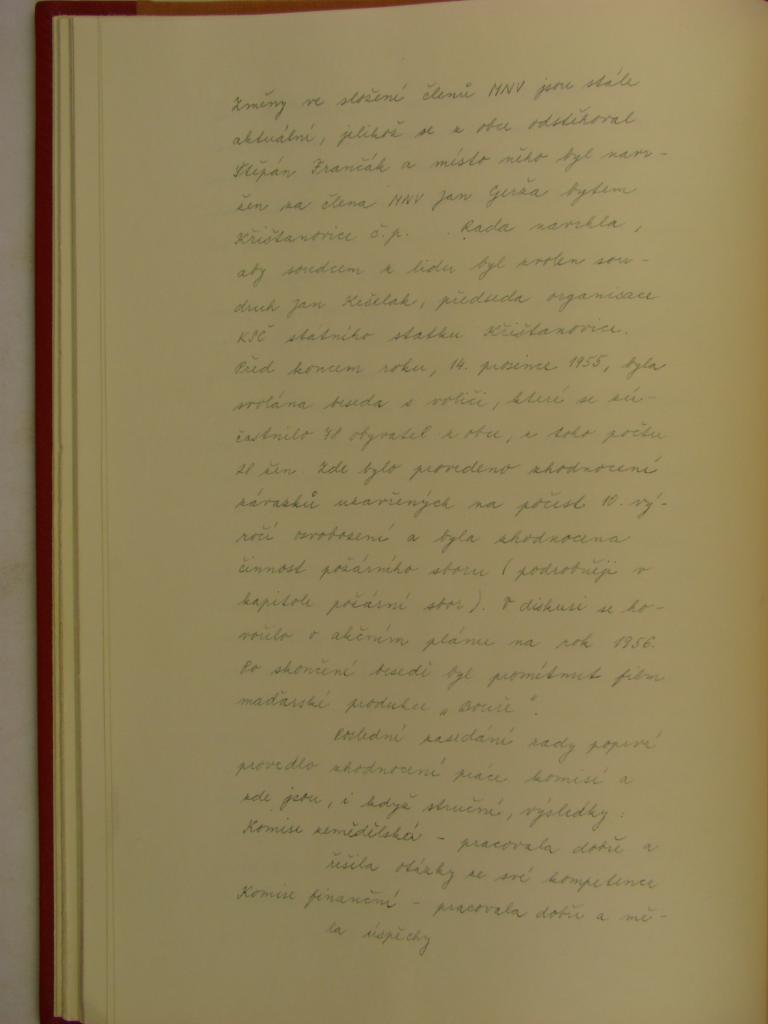 Změny ve složení členů MNV jsou stále
aktuální, jelikož se z obce odstěhoval
Štěpán Frančák a místo něho byl navr-
žen za člena MNV Jan Gerža bytem
Křišťanovice č.p. . Rada navrhla,
aby soudcem z lidu byl zvolen sou-
druh Jan Kešelak, předseda organisace
KSČ státního statku Křišťanovice.
Před koncem roku, 14. prosince 1955, byla
svolána beseda s voliči, které se zú-
častnilo 48 obyvatel z obce, z toho počtu
28 žen. Zde bylo provedeno zhodnocení
závazků uzavřených na počest 10. vý-
ročí osvobození a byla zhodnocena
činnost požárního sboru (podrobněji v
kapitole požární sbor). V diskusi se ho-
vořilo o akčním plánu na rok 1956.
Po skončení besedě byl promítnut film
maďarské produkce „Bouře".
Poslední zasedání rady poprvé
provedlo zhodnocení práce komisí a
zde jsou, i když stručné, výsledky:
Komise zemědělská – pracovala dobře a
řešila otázky ze své kompetence
Komise finanční – pracovala dobře a mě-
la úspěchy